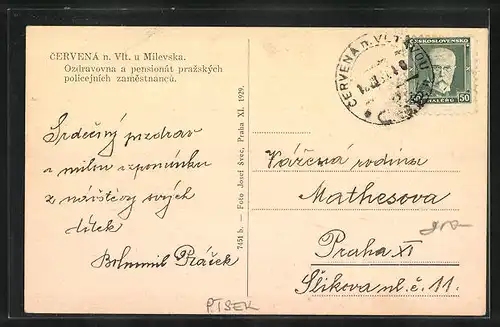 ČERVENÁ n. Vlt. u Milevska.
Ozdravovna a pensionát pražských
policejních zaměstnanců.
Srdečný pozdrav
a milou vzpomínku
z návštěvy svých
dítek
Bohumil Ptáček
7451 b. – Foto Josef Švec, Praha XI. 1929.
ČERVENÁ n. VLTAVOU
ČESKOSLOVENSKO
50
HALÉŘŮ
Vážená rodina
Mathesova
Praha XI
Šlikova ul. č. 11.
PÍSEK